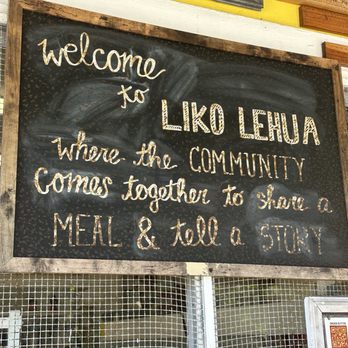 welcome
to
LIKO LEHUA
where the COMMUNITY
comes together to share a
MEAL & tell a STORY